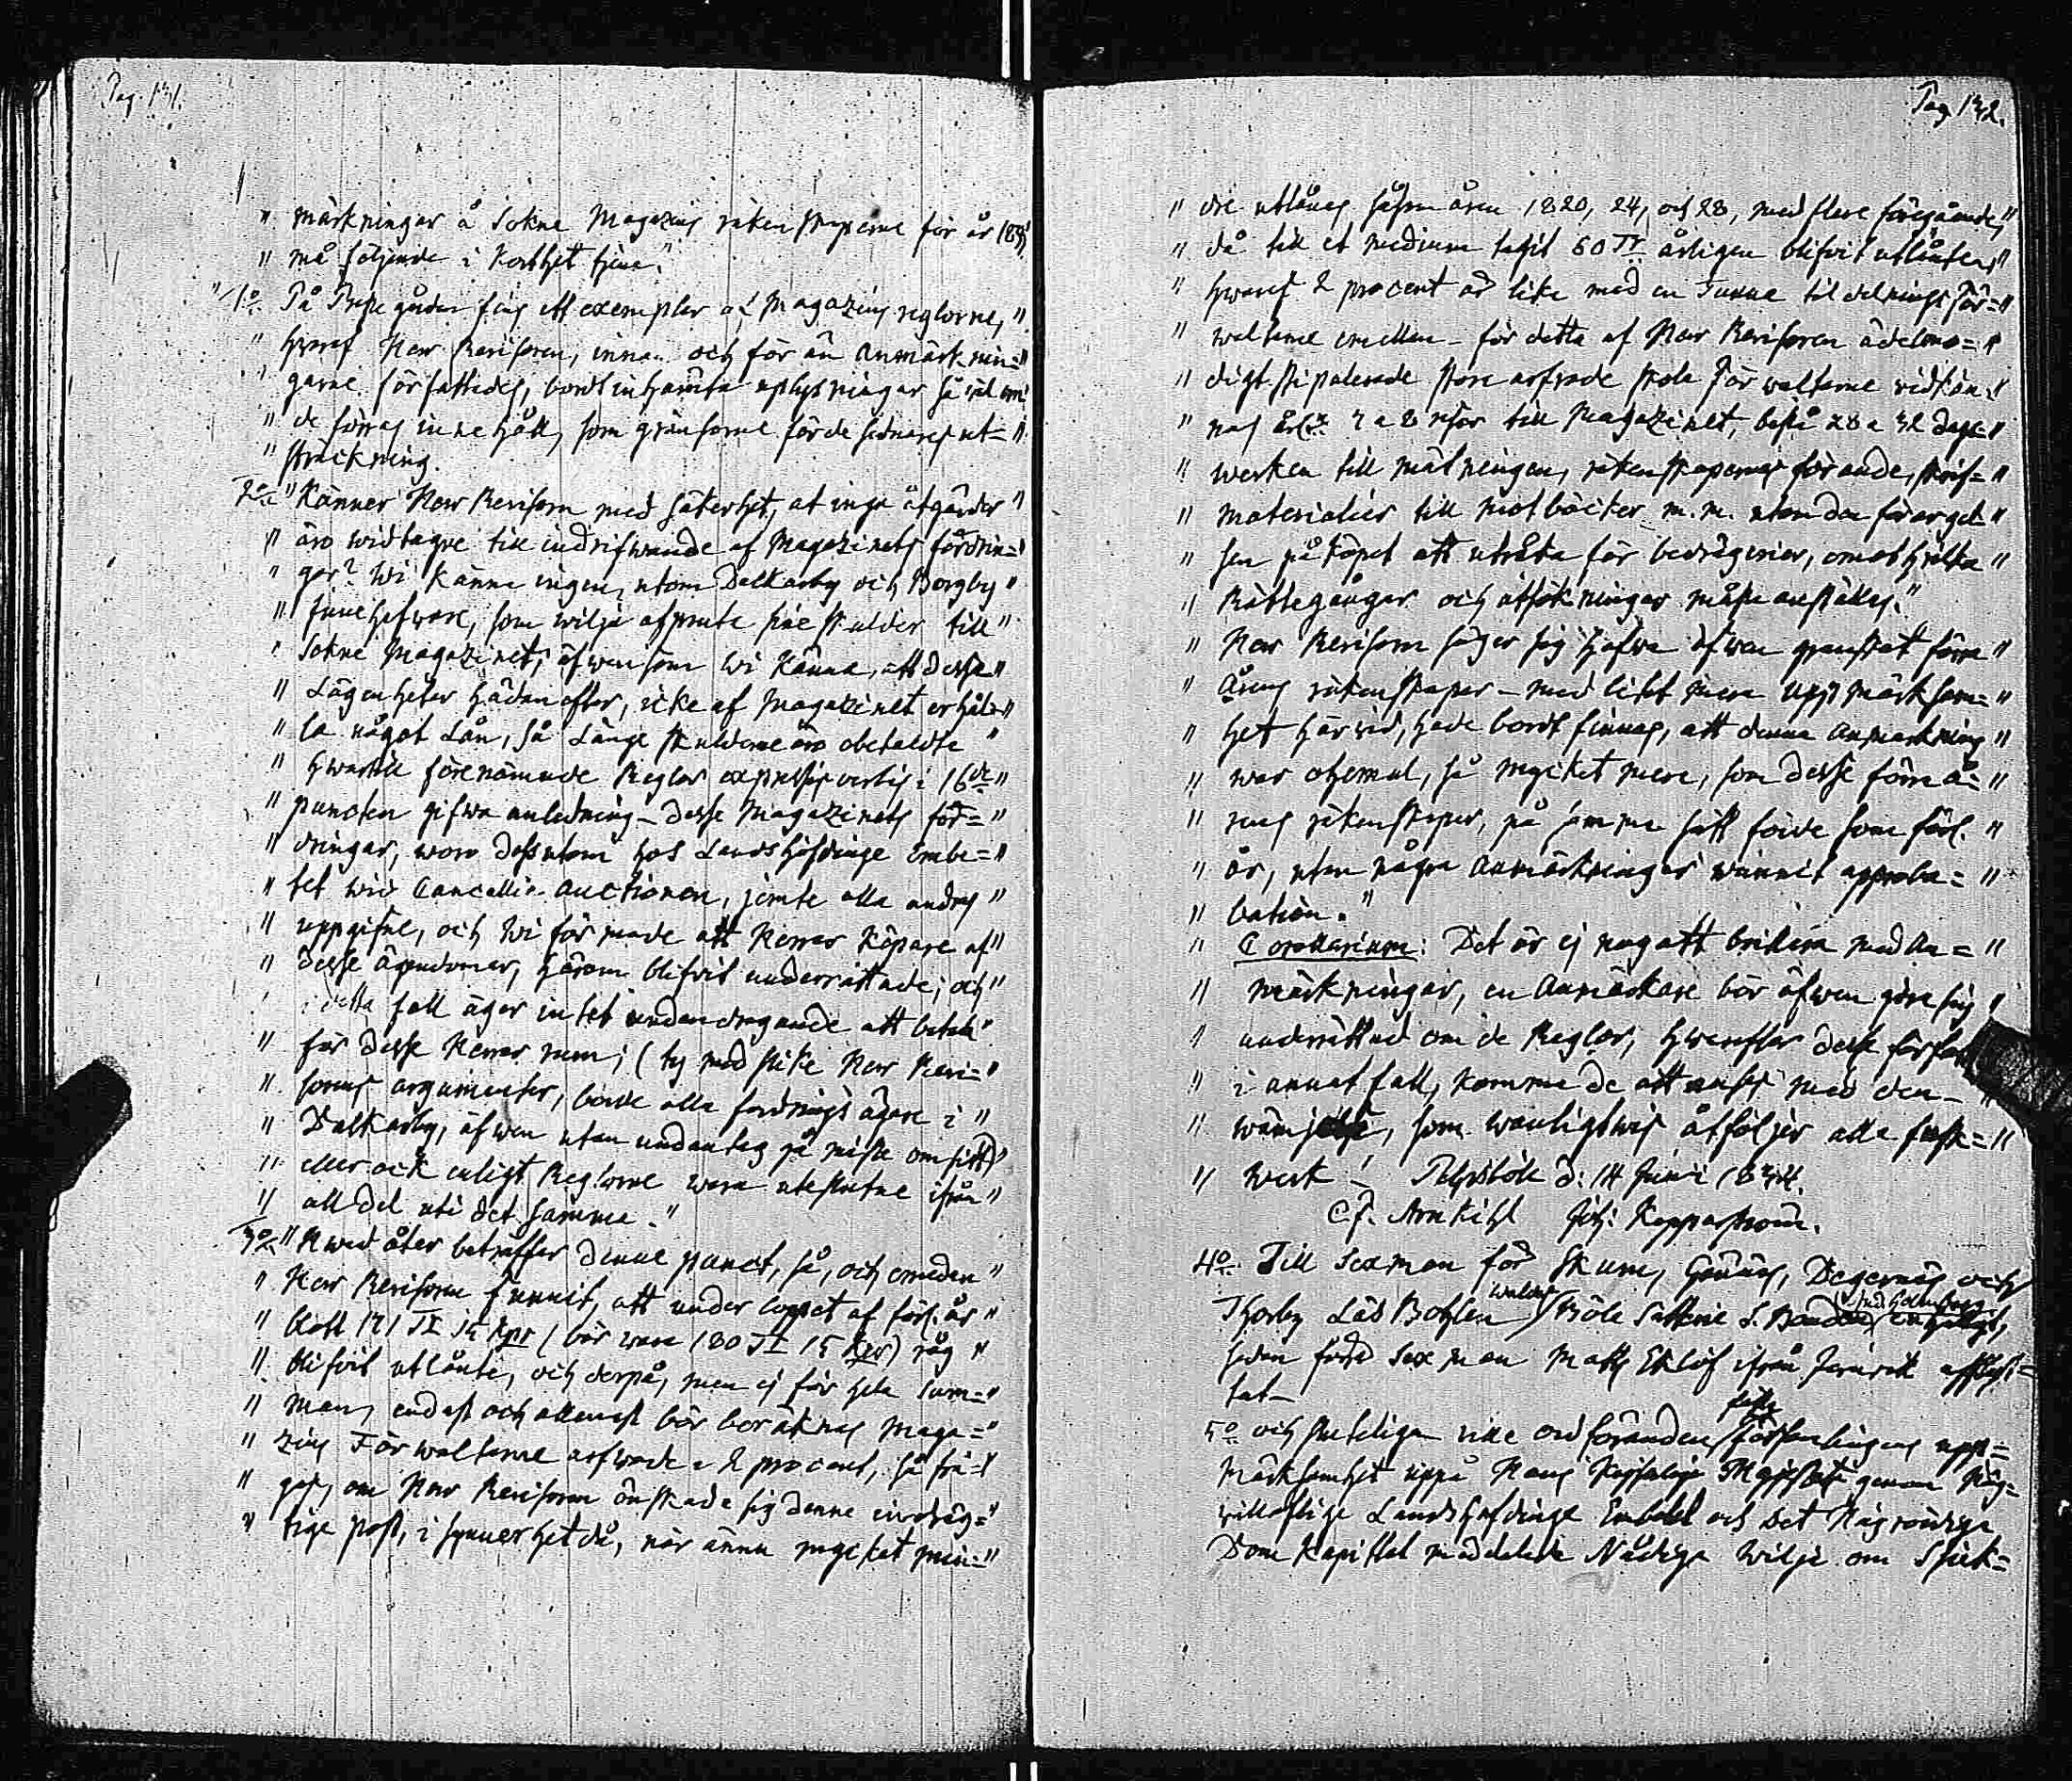 Pag. 131.
" märkningar å Sokne Magazins räkenskaperne för år 1833
" må följande i korthet tjena."
" 1o På Prestegården fins ett exemplar af Magazins reglorne, "
" hwaraf Herr Revisoren, innan och för än anmärknin= "
" garne författades, bordt inhämta uplysningar så väl om
" de förras innehåll, som gränsorne för de sednares ut= "
" sträckning.
2o " Känner Herr Revisorn med säkerhet, at inga åtgärder "
" äro widtagne till indrifwande af Magazinets fordrin= "
" gar? Wi känna ingen, utom Dalkarby och Borgby "
" innehafware, som wilja afpruta sine skulder till "
" Sokne Magazinet, äfwen som wi känna, att desse "
" Lägenheter hädanefter, icke af Magazinet erhål= "
" la något Lån, så länge skulderne äro obetaldte "
" hwartill förenämnde Reglor expressis verbis i 16de "
" puncten gifwa anledning – desse Magazinets for= "
" dringar, woro dessutom hos Landshöfdinge Embe= "
" tet wid Cancellie auctionen, jemte alla andras "
" uppgifne, och wi förmode att Herrar Köpare af "
" desse ägendomar, härom blifvit underrättade; och "
" i detta fall äger intet undandragande att betala "
" för desse Herrar rum; (ty med slike Herr Revi= "
" sorns argumenter, borde alla fordringsägare i "
" Dalkarby, äfwen utan undantag gå miste om sitt) "
" eller ock enligt Reglorne wara uteslutne ifrån "
" all del uti det samma."
3o " Hwad åter beträffar denne punct, så, och emedan "
" Herr Revisorn funnit, att under loppet af förl. år "
" blott 171 Tr 15 kpr (bör wara 180 Tr 15 kpr) råg "
" blifvit utlånte, och derpå, men ej för hela Sum= "
" man, endast och allenast bör beräknas Maga= "
" zins Förwaltarne arfwode a 2 procent, så frå= "
" gas, om Herr Revisoren önskade sig denne indräg= "
" tige post, i synnerhet då, när ännu mycket min= "
Pag. 132.
" dre utlånas såsom åren 1820, 24, och 28, med flere föregående, "
" då till et medium tagit 50 Tr årligen blifvit utlånte, "
" hwaraf 2 procent är lika med en Tunna til delning För= "
" waltarne emellan – för detta af Herr Revisoren ädelmo= "
" digt stipulerade stora arfwode skola Förwaltarne widkän= "
" nas 7 a 8 resor till Magazinet, bestå 28 a 32 dags= "
" werken till mätningen, räkenskapernas förande, skrif= "
" materialier till motböcker m.m. utan den förargel= "
" sen på köpet att utstå för bedrägerier, emot hwilka "
" Rättegångar och utsökningar måste anställas."
" Herr Revisorn säger sig hafwa äfwen granskat förra "
" Årens räkenskaper – med litet mera uppmärksam= "
" het härwid, hade bordt finnas, att denna Anmärkning "
" war onormal, så mycket mera, som desse förra å= "
" rens räkenskaper, på samma sätt förde som förl. "
" år, utan några Anmärkningar wunnit approba= "
" bation."
" Corollarium: Det är ej nog att briljera med An= "
" märkningar, en Anmärkare bör äfwen göra sig "
" underrättad om de Reglor, hwarefter desse författas
" i annat fall, komma de att anses med den –
" wämjelse, som wanligtwis åtföljer alla fusk= "
" werk –! Pehrsböle d: 14 Junii 1834.
C.F. Arnkihl Joh: Kopparström.
4o Till Sexman för Skum, Gränäs, Degernäs och
Thorby Läd Bohlen waldes Böle Sutterie S.
sedan förra Sexman Matts Eklöf ifrån Jemvik afflyt=
tat –
5o och slutligen wille ordföranden fästa församlingens upp=
märksamhet uppå Hans Kejserliga Majestäts genom Hög=
willoflige Landshöfdinge Embetet och Det Högwördiga
Dom Kapitlet meddelade Nådiga wilja om Sjuk=